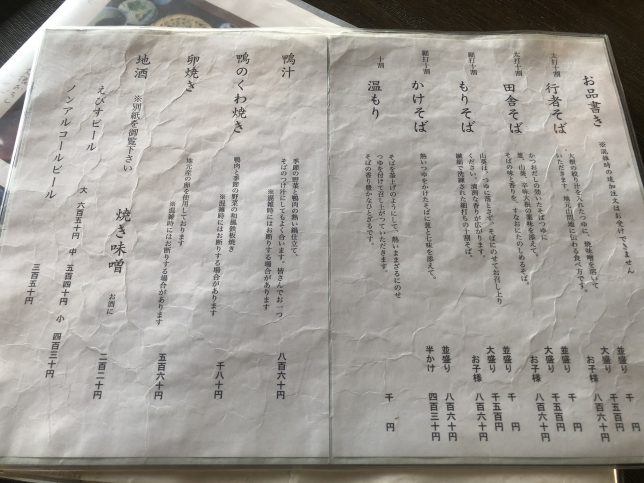 お品書き ※混雑時の追加注文はお受けできません
太打十割 行者そば
大根の絞り汁を入れたつゆに、焼味噌を溶いて
いただきます。地元山間地に伝わる食べ方です。
並盛り 千 円
大盛り 千五百円
お子様 八百六十円
太打十割 田舎そば
かつおだしの効いたそばつゆに、
葱、山葵、辛味大根の薬味を添えて。
そばの味と香りを、すなおにたのしめるそば。
並盛り 千 円
大盛り 千五百円
お子様 八百六十円
細打十割 もりそば
山葵は、つゆに落とさず、そばにのせてお召し上り
ください。清冽な香りが広がります。
繊細で洗練された細打ちの十割そば。
並盛り 千 円
大盛り 千五百円
お子様 八百六十円
細打十割 かけそば
熱いつゆをかけたそばに葱と七味を添えて。
並盛り 八百六十円
半かけ 四百三十円
十割 温もり
そばを釜上げのようにして、熱いままざるにのせ
つゆを付けて召し上がっていただきます。
そばの香り豊かなひとざるです。
千 円
鴨汁
季節の野菜と鴨肉の熱い鍋仕立て。
そばのつけ汁にしてもよく合います。皆さんでお一つ
※混雑時にはお断りする場合があります
八百六十円
鴨のくわ焼き
鴨肉と季節の野菜の和風鉄板焼き
※混雑時にはお断りする場合があります
千八十円
卵焼き
地元産の卵を使用しております
※混雑時にはお断りする場合があります
五百六十円
地酒 ※別紙を御覧下さい 焼き味噌 お酒に 二百二十円
えびすビール 大 六百五十円 中 五百四十円 小 四百三十円
ノンアルコールビール 三百五十円